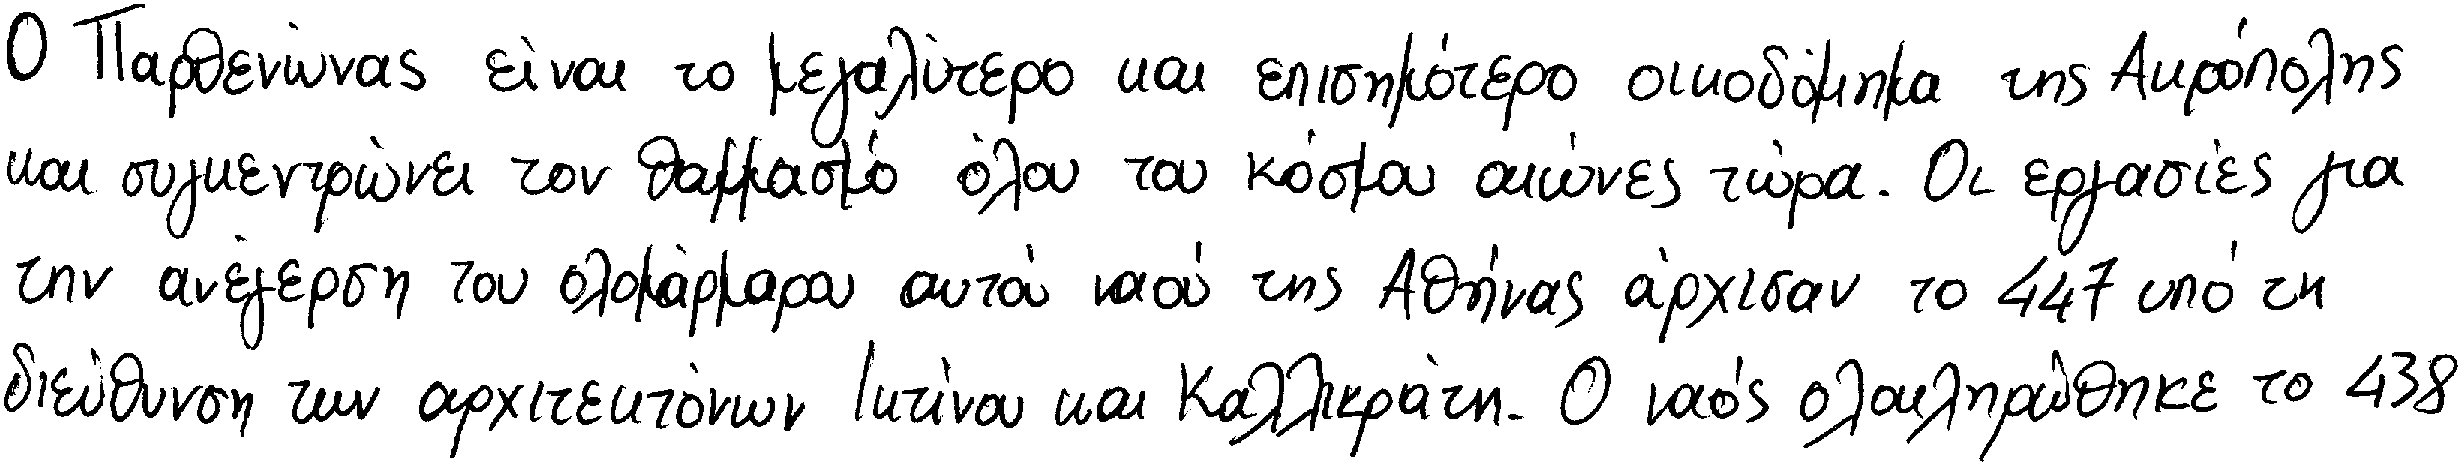 Ο Παρθενώνας είναι το μεγαλύτερο και επισημότερο οικοδόμημα της Ακρόπολης
και συγκεντρώνει τον θαμμασμό όλου του κόσμου αιώνες τώρα. Οι εργασίες για
την ανέγερση του ολομάρμαρου αυτού ναού της Αθήνας άρχισαν το 447 υπό τη
διεύθυνση των αρχιτεκτόνων Ικτίνου και Καλλικράτη. Ο ναός ολοκληρώθηκε το 438